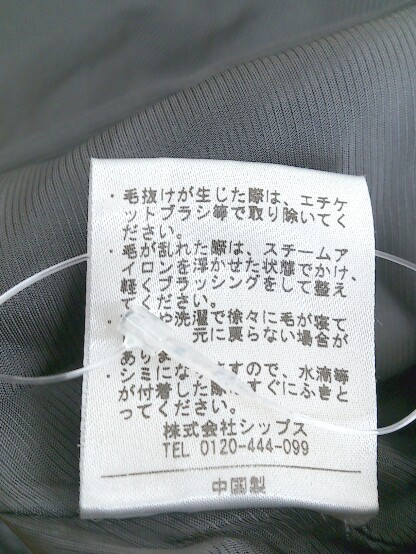 ・毛抜けが生じた際は、エチケ
ットブラシ等で取り除いてく
ださい。
・毛が乱れた際は、スチームア
イロンを浮かせた状態でかけ、
軽くブラッシングをして整え
てください。
や洗濯で徐々に毛が寝て
元に戻らない場合が
ありま
・シミにな すので、水滴等
が付着した際 すぐにふきと
ってください。
株式会社シップス
TEL 0120-444-099
中国製